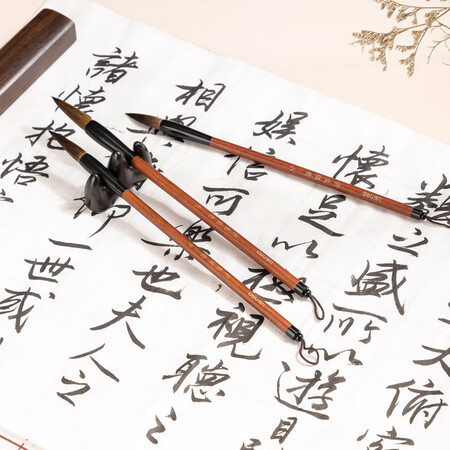 大俯
之盛所以遊目
懷足以極視聽之
娛信可樂也夫人之
相與仰一世或
諸懷抱悟